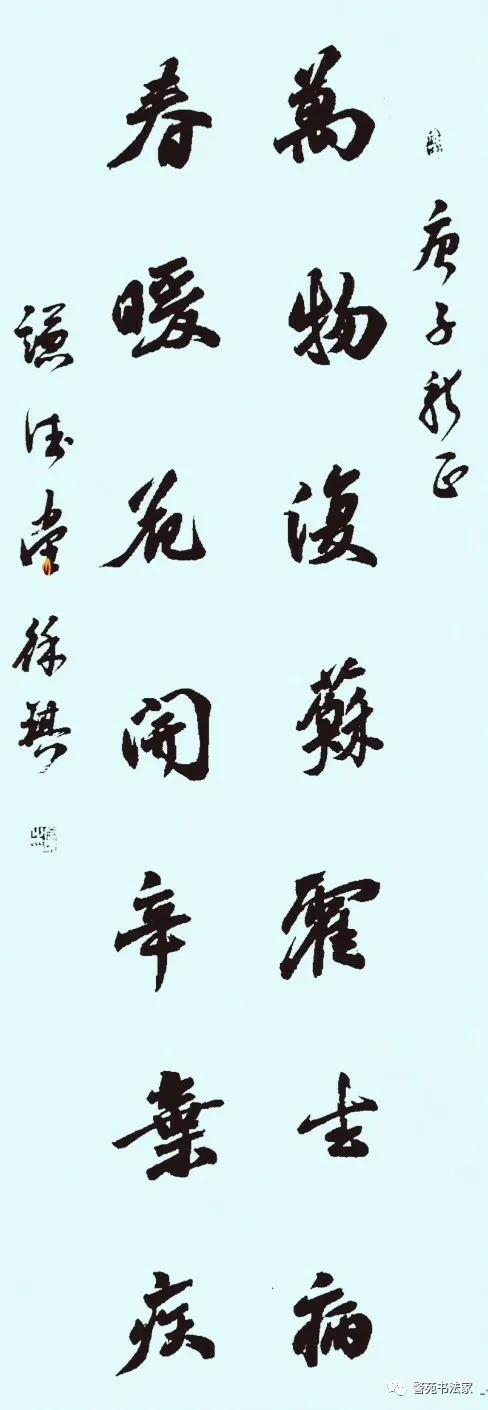 庚子新正
萬物復蘇霍去病
春暖花開辛棄疾
謙德堂徐琪
警苑书法家